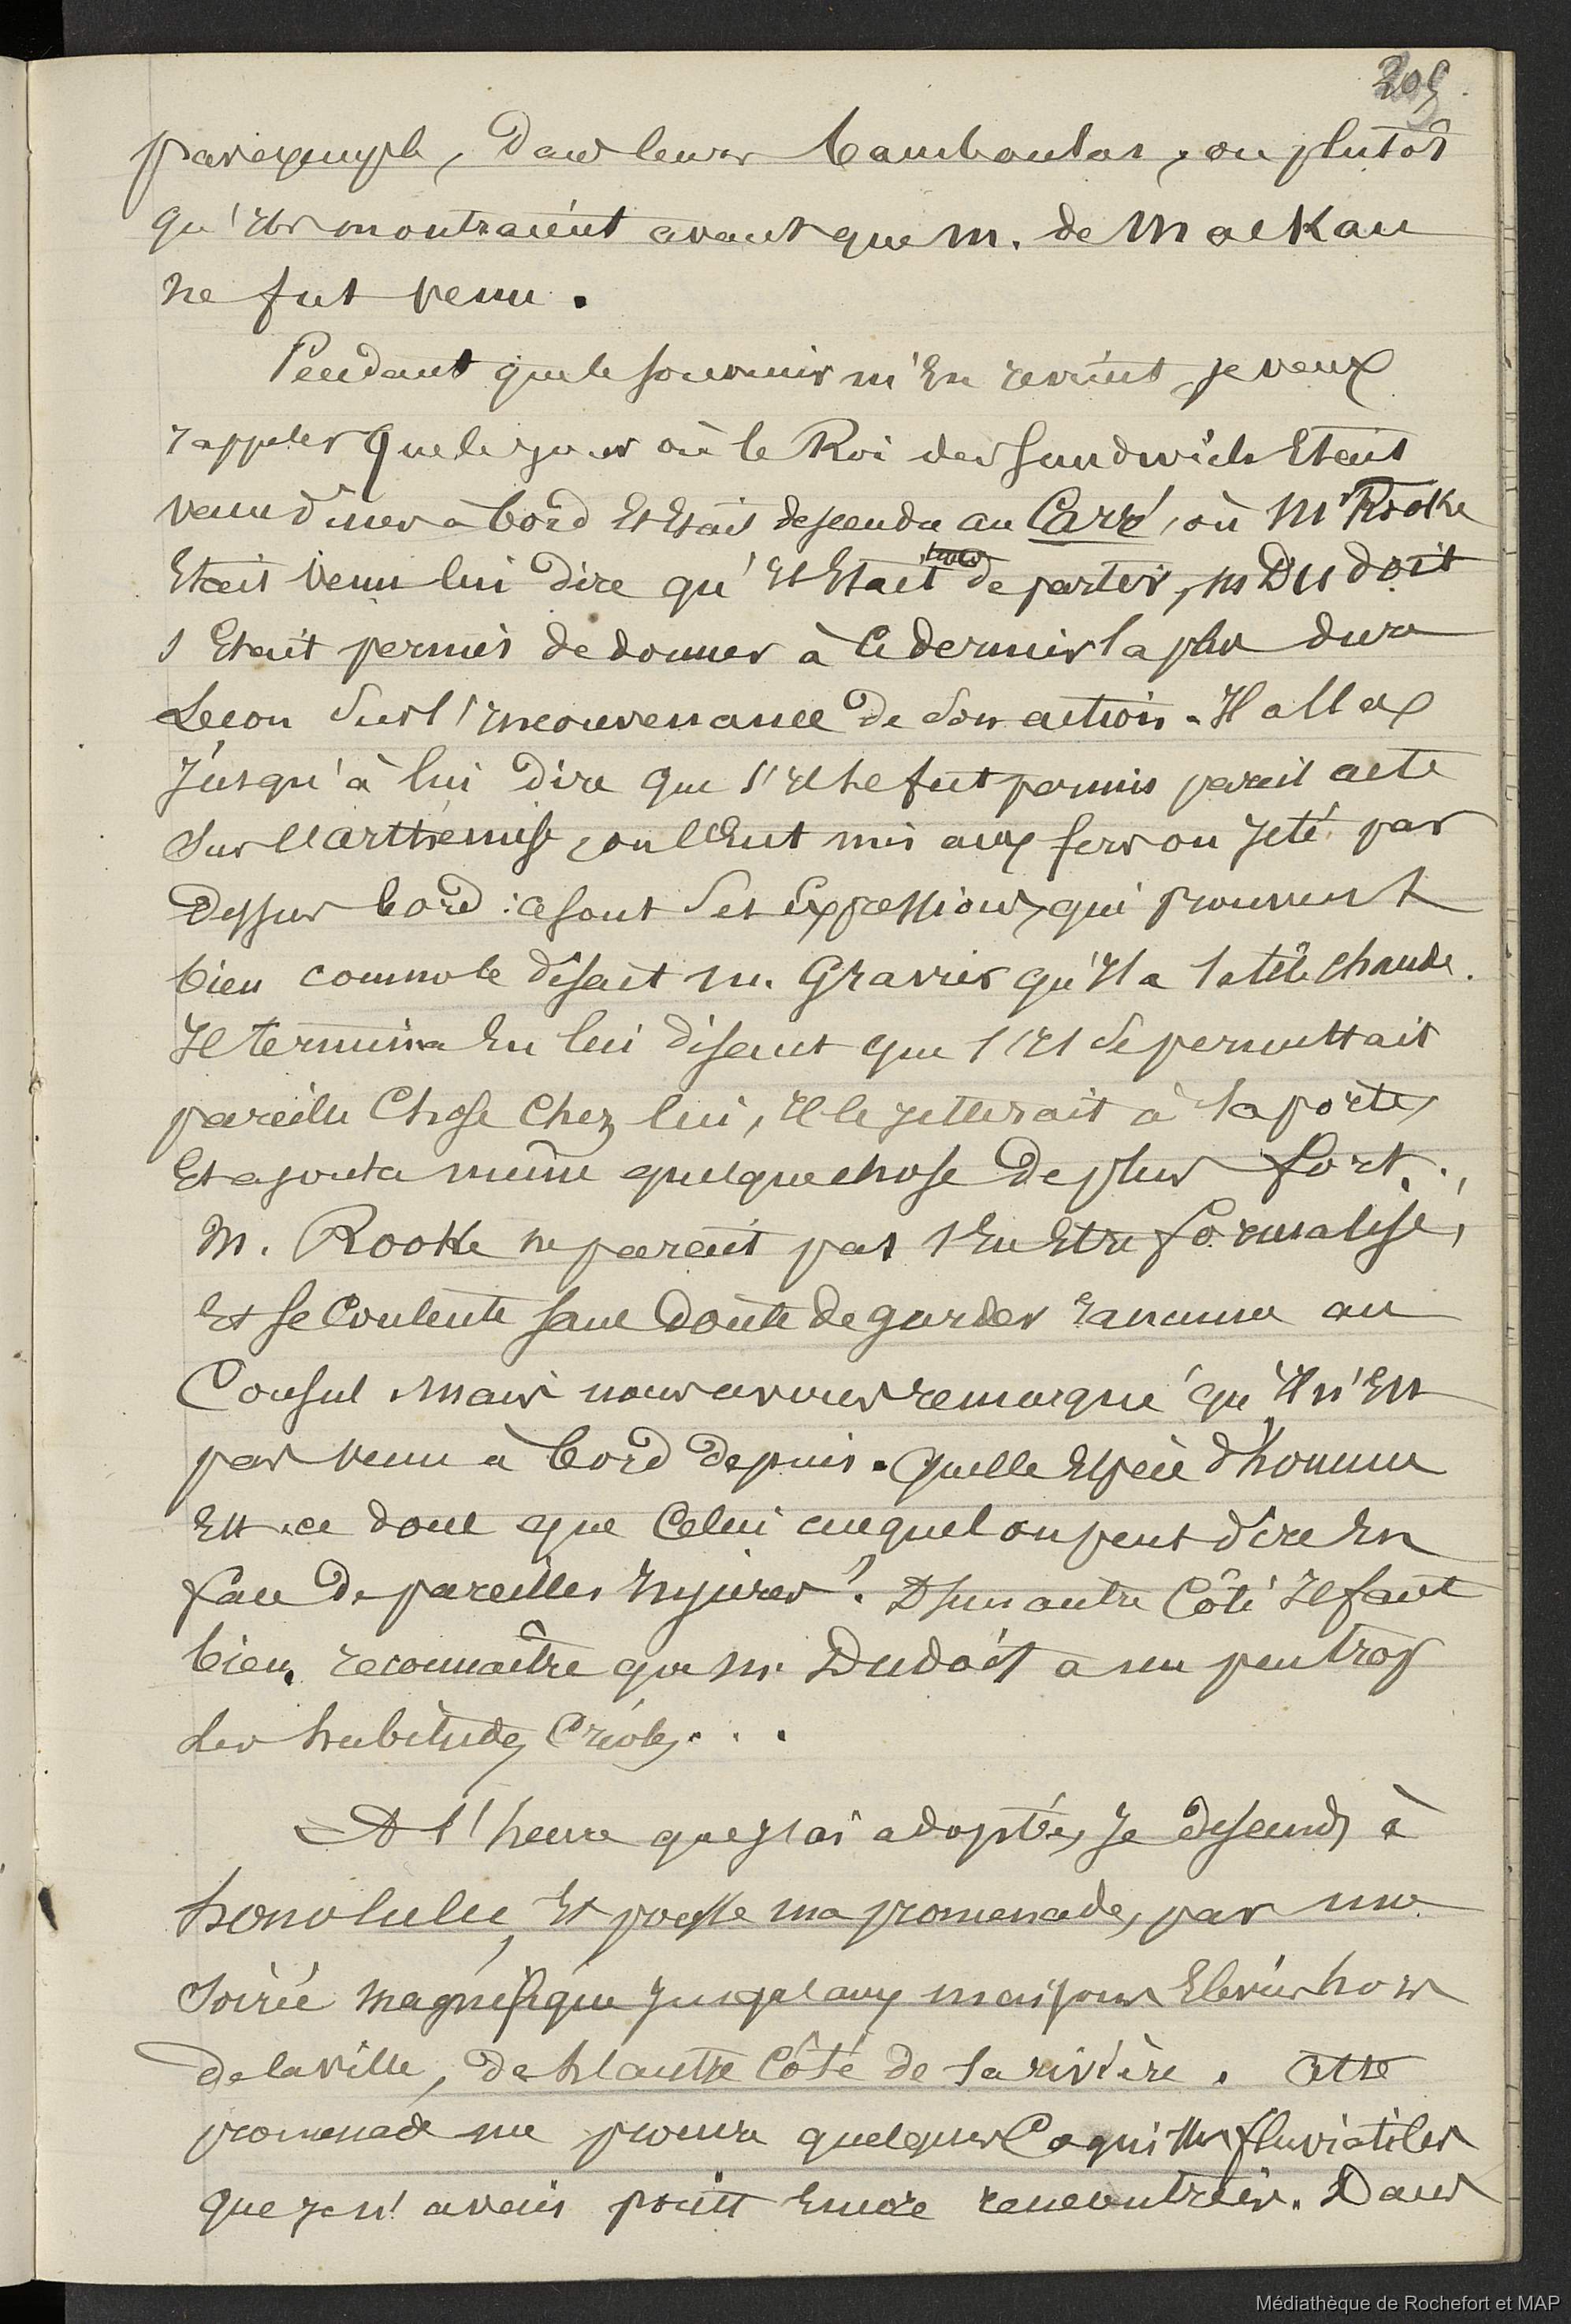 205
par exemple, dans leurs bamboulas, ou plutôt
qu'ils montraient avant que M. de Mackau
ne fut venu.
Pendant que le souvenir m'en revient, je veux
rappeler que le jour où le Roi des Sandwich était
venu diner à bord et était descendu au Carré, où Mr Rooke
était venu lui dire qu'il était tems de partir, M Dudoit
s'était permis de donner à ce dernier la plus dure
leçon sur l'inconvenance de son action. Il alla
jusqu'à lui dire que s'il se fut permis pareil acte
sur l'Arthémise, on l'eut mis aux fers ou jeté par
dessus bord : ce sont ses expressions, qui prouvent
bien comme le disait M. Gravier qu'il a la tête chaude.
Il termina en lui disant que s'il se permettait
pareille chose chez lui, il le jetterait à la porte,
et ajouta même quelque chose de plus fort.
M. Rooke ne parait pas s'en être formalisé,
et se contente sans doute de garder rancune au
Consul. Mais nous avons remarqué qu'il n'est
pas venu à bord depuis. Quelle espèce d'homme
est-ce donc que celui auquel on peut dire en
face de pareilles injures ? D'un autre côté il faut
bien reconnaître que M. Dudoit a un peu trop
les habitudes créoles...
A l'heure que j'ai adoptée, je descends à
honolulu, et pousse ma promenade, par une
soirée magnifique jusqu'aux maisons élevées hors
de la ville, de l'autre côté de la rivière. Cette
promenade me procura quelques Coquilles fluviatiles
que je n'avais point encore rencontrées. Dans
Médiathèque de Rochefort et MAP